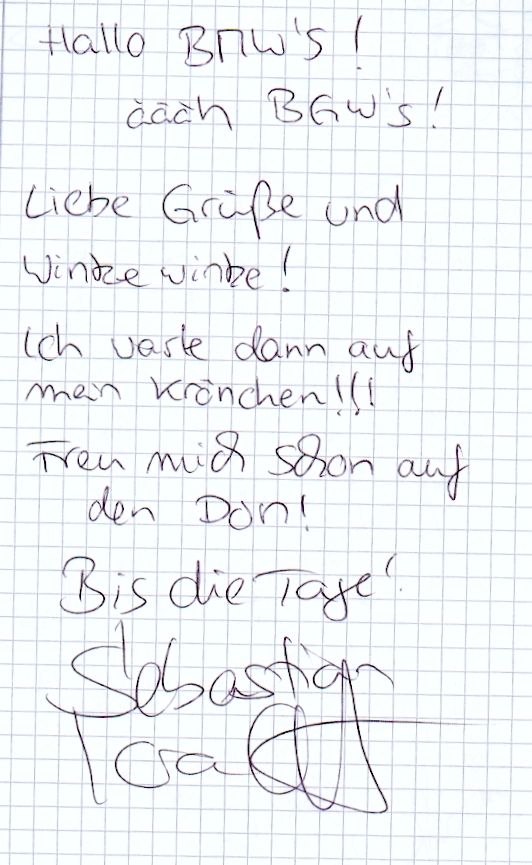 Hallo BMW's!
äääh BGW's!
Liebe Grüße und
Winke winke!
Ich warte dann auf
mein Krönchen!!!
Freu mich schon auf
den Don!
Bis die Tage!
Sebastian